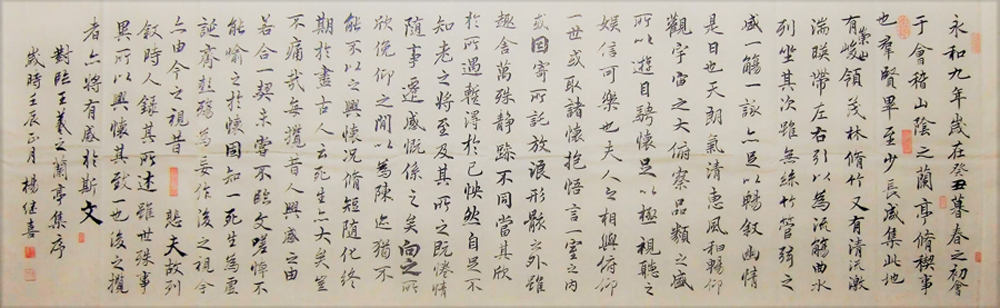 永和九年歲在癸丑暮春之初會
于會稽山陰之蘭亭脩稧事
也羣賢畢至少長咸集此地
有崇山峻領茂林脩竹又有清流激
湍暎帶左右引以為流觴曲水
列坐其次雖無絲竹管弦之
盛一觴一詠亦足以暢叙幽情
是日也天朗氣清惠風和暢仰
觀宇宙之大俯察品類之盛
所以遊目騁懷足以極視聽之
娛信可樂也夫人之相與俯仰
一世或取諸懷抱悟言一室之內
或因寄所託放浪形骸之外雖
趣舍萬殊靜躁不同當其欣
於所遇暫得於己怏然自足不
知老之將至及其所之既惓情
隨事遷感慨係之矣向之所
欣俛仰之間以為陳迹猶不
能不以之興懷況脩短隨化終
期於盡古人云死生亦大矣豈
不痛哉每攬昔人興感之由
若合一契未嘗不臨文嗟悼不
能喻之於懷固知一死生為虛
誕齊彭殤為妄作後之視今
亦由今之視昔 悲夫故列
叙時人錄其所述雖世殊事
異所以興懷其致一也後之攬
者亦將有感於斯文
對臨王羲之蘭亭集序
歲時壬辰正月 楊继喜